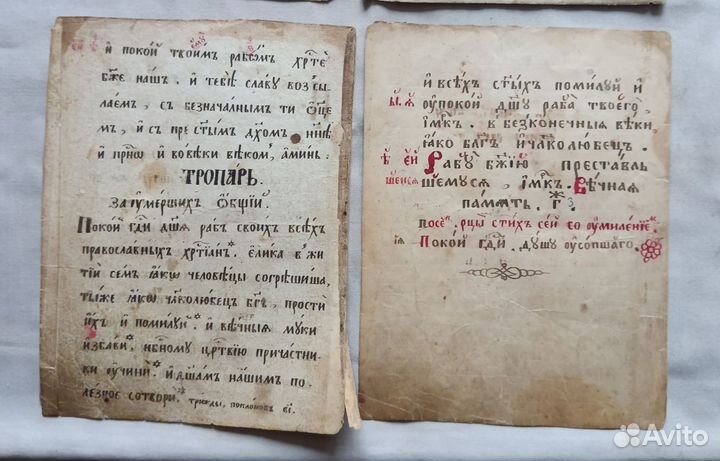 и҆ покои̑ твои́мъ рабо́мъ хрⷭ҇те̑
бж҃е на́шъ. и҆ тебѣ̀ сла́ву возсы
ла́емъ, съ безнача́лнымъ ти ѻ҆ц҃е
мъ, и҆ съ прест҃ы́мъ дх҃омъ нн҃ѣ
и҆ при́сно и҆ во вѣ́ки вѣко́мъ, а҆ми́нь.
ТРОПА́РЬ.
За оу҆ме́рших ѻ҆́бщїи.
Поко́й гдⷭ҇и дш҃а ра́бъ свои́хъ всѣ́хъ
правосла́вныхъ хрⷭ҇тїа́нъ. є҆ли́ка в жи
тїи́ семъ ꙗ҆́кѡ человѣ́цы согрѣши́ша,
ты́же ꙗ҆́кѡ чл҃колю́бецъ бг҃ъ, прости̑
и҆́хъ и҆ поми́луй. и҆ вѣ́чныя му́ки
изба́ви. нбⷭ҇ному црⷭ҇твїю прича́стни
ки оу҆чини̑. и҆ дш҃а́мъ на́шимъ по
ле́зное сотвори̑. три́жды, покло́новъ в҃і.
и҆ всѣ́хъ ст҃ы́хъ поми́луй и҆
оу҆поко́й дш҃у раба̀ твоего̀,
и҆́мⷬ҇къ. в безконе́чныя вѣ́ки,
ꙗ҆́ко бл҃гъ и҆ чл҃колю́бецъ.
Рабу̀ бж҃їю преста́вль
шемуся, и҆́мⷬ҇къ. Вѣ́чная
па́мять. г҃ж
посе́мъ. рцы̀ сти́хъ се́й со оу҆миле́нїе
Поко́й гдⷭ҇и. ду́шу оу҆со́пшаго.
Avito